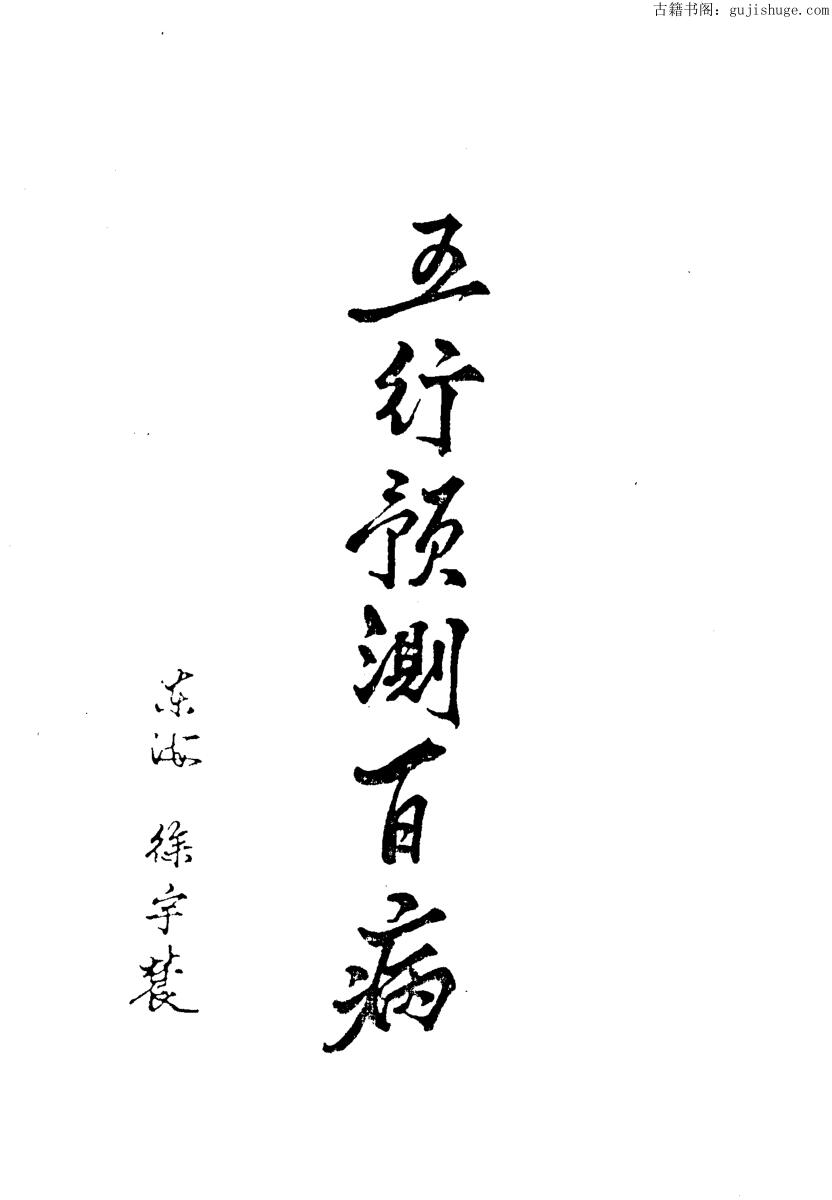 古籍书阁：gujishuge.com
五行预测百病
东海 徐宇辳